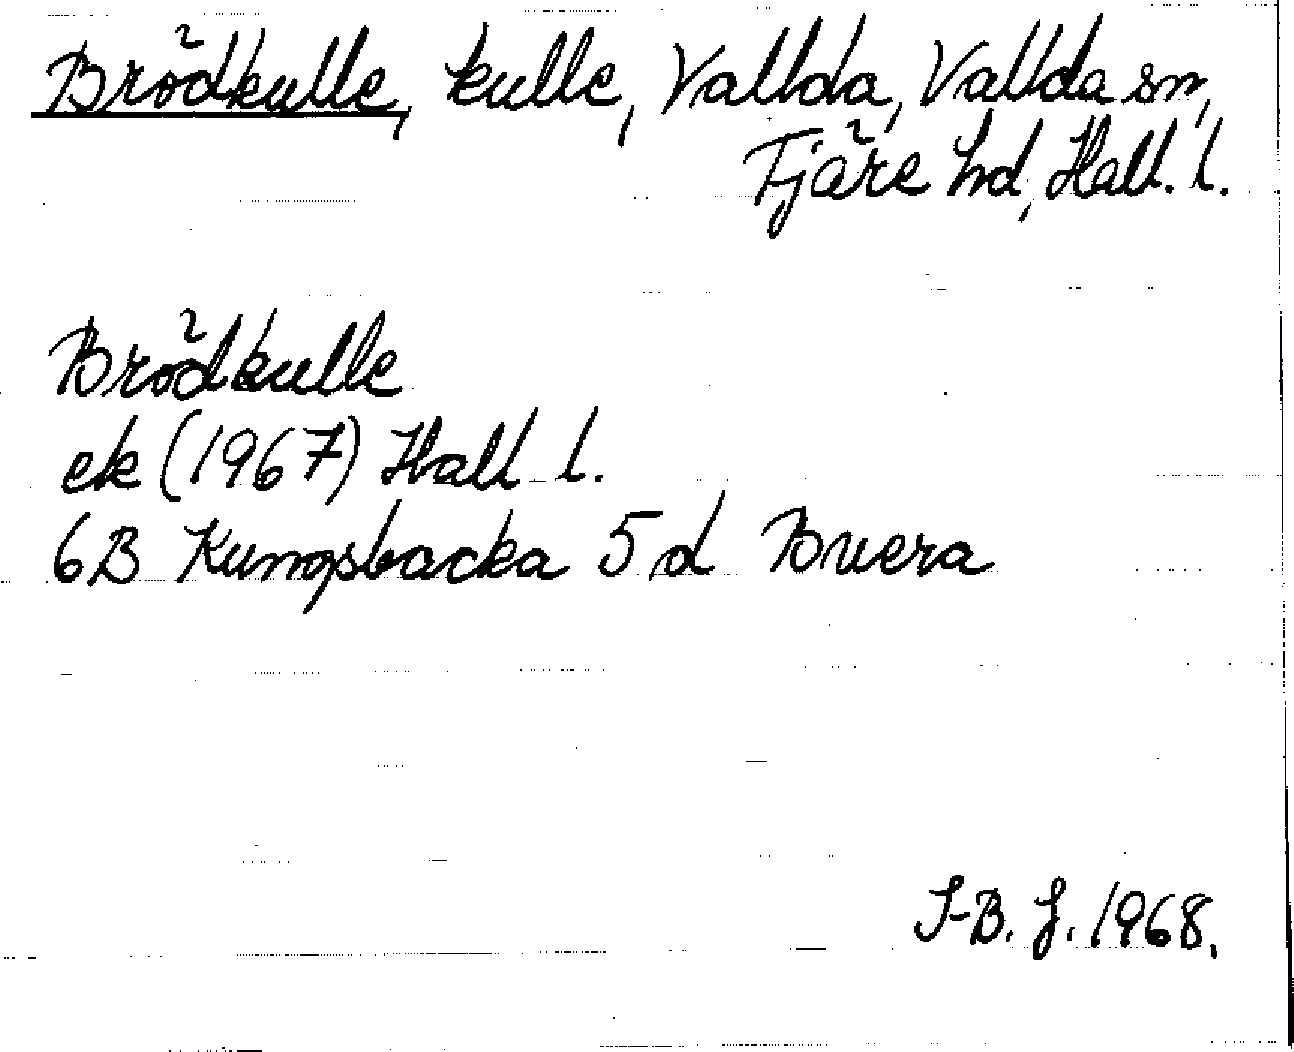 Brödkulle, kulle, Vallda, Vallda sn,
Fjäre hd, Hall. l.
Brödkulle
ek (1967) Hall l.
6B Kungsbacka 5 d Buera
I-B. J. 1968.